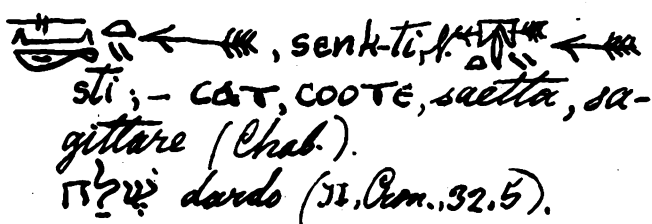 , senk-ti,
sti; – ⲥⲁⲧ, ⲥⲟⲟⲧⲉ, saetta, sa-
gittare (Chab.).
שֶׁלַח dardo (II, Cron., 32,5).